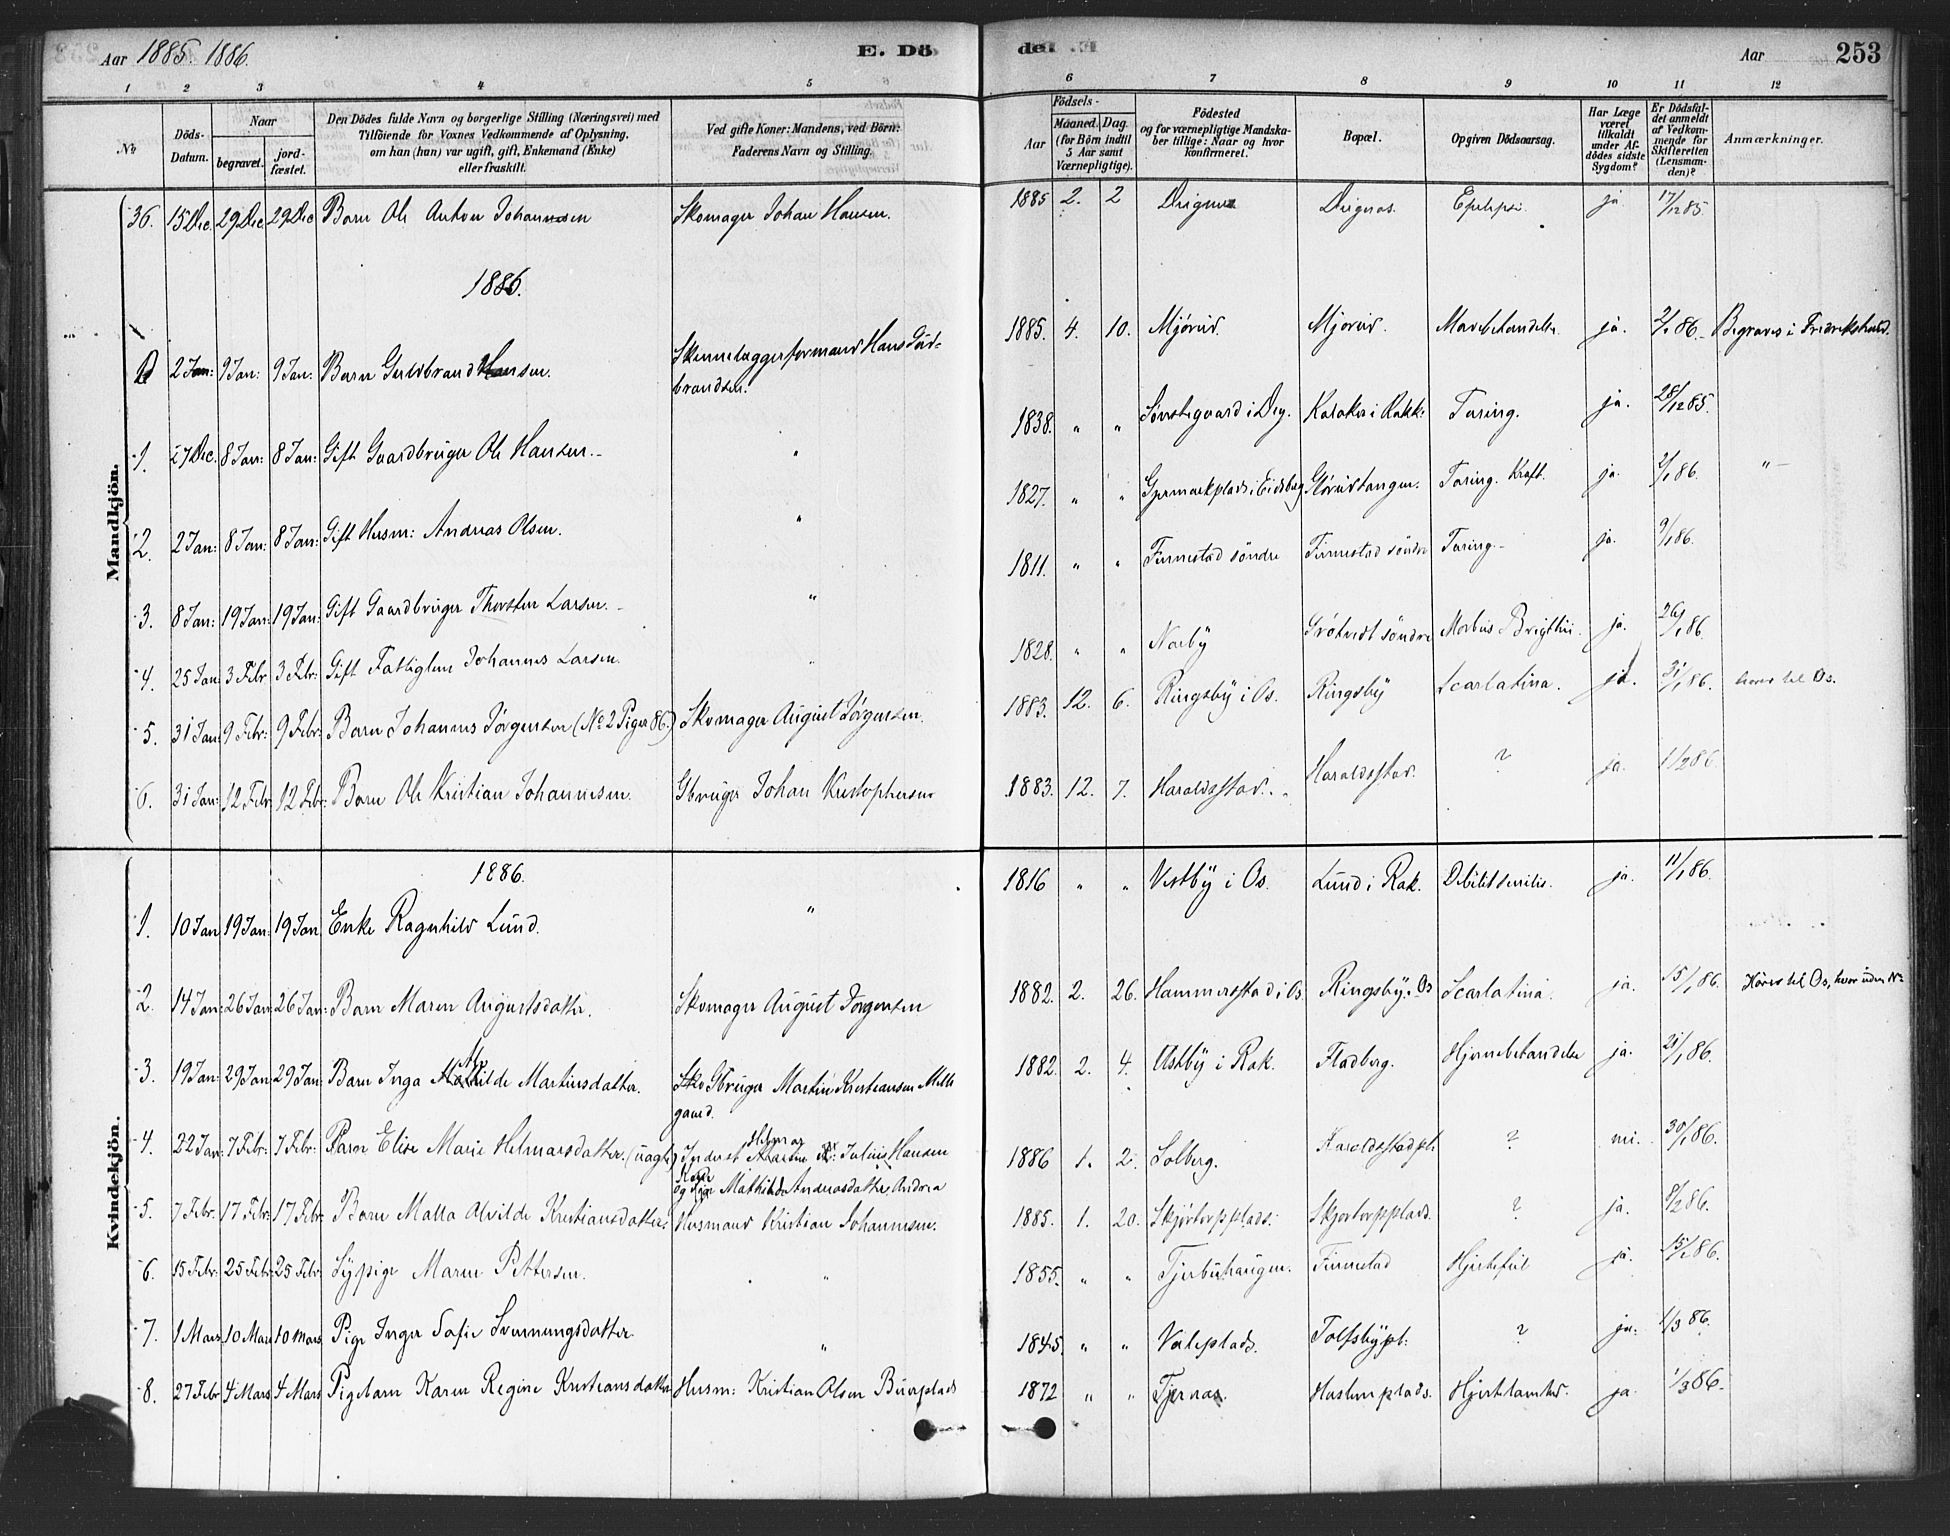 Aar 1885. 1886. E. Dö de. Aar 253
1 2 3 4 5 6 7 8 9 10 11 12
No. Döds-Datum. Naar begravet. jord-fæstet. Den Dödes fulde Navn og borgerlige Stilling (Næringsvei) med Tilföiende for Voxnes Vedkommende af Oplysning, om han (hun) var ugift, gift, Enkemand (Enke) eller fraskilt. Ved gifte Koner: Mandens, ved Börn: Faderens Navn og Stilling. Födsels- Aar Maaned. Dag. (for Börn indtil 5 Aar samt Værnepligtige). Födested og for værnepligtige Mandska-ber tillige: Naar og hvor konfirmeret. Bopæl. Opgiven Dödsaarsag. Har Læge været tilkaldt under Af-dödes sidste Sygdom? Er Dödsfal-det anmeldt af Vedkom-mende for Skifteretten (Lensman-den)? Anmærkninger.
Mandkjön.
36. 15 Dec. 29 Dec. 29 Dec Barn Ole Anton Johannsen Skomager Johan Hansen. 1885 2. 2 Epilepsi. ja. 17/12 85.
1886.
2 Jan: 9 Jan: 9 Jan: Barn Guldbrand Hansen. Skinnelæggerformand Hans Guld-brandsen. 1885. 4. 10. Mjørud. Mjørud. Mavebetændelse ja. 2/1 86. Begraves i Fredrikshald.
1. 27 Dec. 8 Jan: 8 Jan: Gift Gaardbruger Ole Hansen. " 1838. " " Kolaker i Rakke. Tæring. ja. 28/12 85.
2. 2 Jan: 8 Jan: 8 Jan: Gift Husm: Andreas Olsen. " 1827. " " Tæring. Kræft. ja. 2/1 86. "
3. 8 Jan: 19 Jan: 19 Jan: Gift Gaardbruger Thorsten Larsen. " 1811. " " Finnestad söndre Finnestad söndre Tæring. ja. 9/1 86.
4. 25 Jan 3 Febr 3 Febr: Gift Fattiglem Johannes Larsen. " 1828. " " Nærby Grótvedt söndre Morbus Brigthii. ja. 26/1 86.
5. 31 Jan: 9 Febr: 9 Febr: Barn Johannes Jörgensen (No 2 Piger 86.) Skomager August Jörgensen. 1883. 12. 6. Ringsby i Os. Ringsby Scarlatina. ja. 31/1 86. hører til Os.
6. 31 Jan: 12 Febr 12 Febr: Barn Ole Kristian Johannesen. Gbruger Johan Kristophersen 1883. 12. 7. Haraldsstad. Haraldsstad. ? ja. 1/2 86.
Kvindekjön.
1886.
1. 10 Jan 19 Jan: 19 Jan Enke Ragnhild Lund. " 1816 " " Vestby i Os. Lund i Rak. Debilitet senilis. ja. 11/1 86.
2. 14 Jan: 26 Jan: 26 Jan: Barn Maren Augustsdatter. Skomager August Jörgensen 1882. 2. 26. Hammerstad i Os. Ringsby i Os Scarlatina. ja. 15/1 86. Hører til Os, hvor uden No
3. 19 Jan: 29 Jan 29 Jan: Barn Inga Mathilde Martinsdatter. Gbruger Martin Kristiansen Melle gaard. 1882. 2. 4. Østby i Rak. Fladberg. Hjernebetændelse ja. 21/1 86.
4. 22 Jan 7 Febr: 7 Febr: Barn Elise Marie Helmarsdatter. (uægte) Inderst Helmar Julius Hansen og Pige Mathilde Andreasdatter 1886 1. 2. Solberg. Haraldsstadpl. ? nei. 30/1 86.
5. 7 Febr. 17 Febr: 17 Febr: Barn Malla Alvilde Kristiansdatter. Husmand Kristian Johannesen. 1885. 1. 20. Skjórtorpplads. Skjortorpplads. ? ja. 8/2 86.
6. 15 Febr. 25 Febr: 25 Febr. Sypige Maren Pettersen. " 1855. " " Tjerbuhaugen. Finnestad Hjertefeil ja. 15/2 86.
7. 1 Mars 10 Mars 10 Mars. Pige Inger Sofie Svenningsdatter. " 1845. " " Valeplads. Tolfsbypl: ? ja. 1/3 86.
8. 27 Febr 4 Mars 4 Mars Pigebarn Karen Regine Kristiansdatter Husm: Kristian Olsen Buerplads 1872 " " Tjernæs. Haslemplads. Hjertelamhed. ja. 1/3 86.